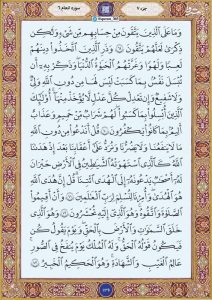 جزء ۷
سورة الأنعام ٦
وَمَا عَلَى الَّذِينَ يَتَّقُونَ مِنْ حِسَابِهِمْ مِنْ شَيْءٍ وَلَٰكِنْ
ذِكْرَىٰ لَعَلَّهُمْ يَتَّقُونَ ﴿٦٩﴾ وَذَرِ الَّذِينَ اتَّخَذُوا دِينَهُمْ
لَعِبًا وَلَهْوًا وَغَرَّتْهُمُ الْحَيَاةُ الدُّنْيَا وَذَكِّرْ بِهِ أَنْ
تُبْسَلَ نَفْسٌ بِمَا كَسَبَتْ لَيْسَ لَهَا مِنْ دُونِ اللَّهِ وَلِيٌّ
وَلَا شَفِيعٌ وَإِنْ تَعْدِلْ كُلَّ عَدْلٍ لَا يُؤْخَذْ مِنْهَا أُولَٰئِكَ
الَّذِينَ أُبْسِلُوا بِمَا كَسَبُوا لَهُمْ شَرَابٌ مِنْ حَمِيمٍ وَعَذَابٌ
أَلِيمٌ بِمَا كَانُوا يَكْفُرُونَ ﴿٧٠﴾ قُلْ أَنَدْعُو مِنْ دُونِ اللَّهِ
مَا لَا يَنْفَعُنَا وَلَا يَضُرُّنَا وَنُرَدُّ عَلَىٰ أَعْقَابِنَا بَعْدَ إِذْ هَدَانَا
اللَّهُ كَالَّذِي اسْتَهْوَتْهُ الشَّيَاطِينُ فِي الْأَرْضِ حَيْرَانَ
لَهُ أَصْحَابٌ يَدْعُونَهُ إِلَى الْهُدَى ائْتِنَا قُلْ إِنَّ هُدَى اللَّهِ
هُوَ الْهُدَىٰ وَأُمِرْنَا لِنُسْلِمَ لِرَبِّ الْعَالَمِينَ ﴿٧١﴾ وَأَنْ أَقِيمُوا
الصَّلَاةَ وَاتَّقُوهُ وَهُوَ الَّذِي إِلَيْهِ تُحْشَرُونَ ﴿٧٢﴾ وَهُوَ الَّذِي
خَلَقَ السَّمَاوَاتِ وَالْأَرْضَ بِالْحَقِّ وَيَوْمَ يَقُولُ كُنْ
فَيَكُونُ قَوْلُهُ الْحَقُّ وَلَهُ الْمُلْكُ يَوْمَ يُنْفَخُ فِي الصُّورِ
عَالِمُ الْغَيْبِ وَالشَّهَادَةِ وَهُوَ الْحَكِيمُ الْخَبِيرُ ﴿٧٣﴾